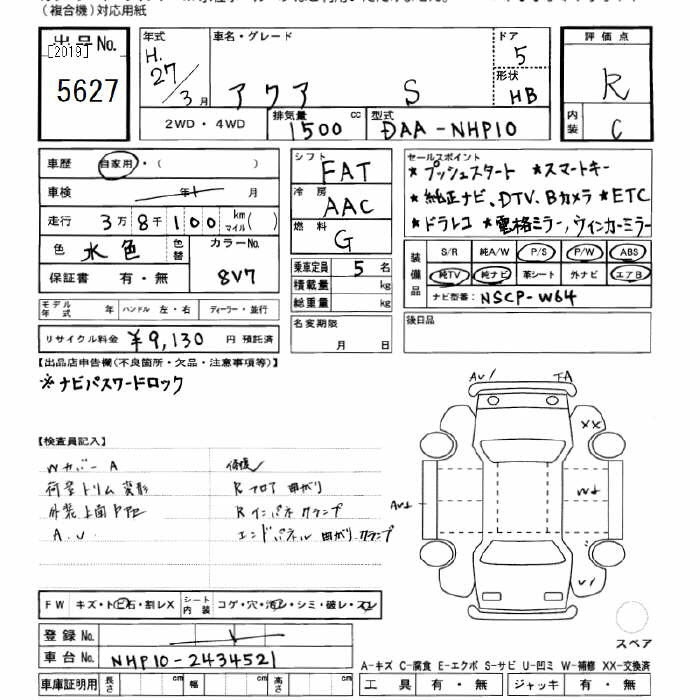 （複合機）対応用紙
出品No.
[2019]
5627
年式
H.
27/3月
車名・グレード
アクア S
ドア
5
形状
HB
評価点
R
内装
C
2WD・4WD
排気量
1500 cc
型式
DAA-NHP10
車歴 自家用・( )
車検 年 月
走行 3万8千100 km マイル( )
色 水色 色替 カラーNo. 8V7
保証書 有・無
モデル年式 年 ハンドル 左・右 ディーラー・並行
リサイクル料金 ¥9,130 円 預託済
シフト FAT
冷房 AAC
燃料 G
乗車定員 5 名
積載量 kg
総重量 kg
名変期限
月 日
セールスポイント
★プッシュスタート ★スマートキー
★純正ナビ、DTV、Bカメラ ★ETC
★ドラレコ ★電格ミラー、ウィンカーミラー
装備品
S/R 純A/W P/S P/W ABS
純TV 純ナビ 革シート 外ナビ エアB
ナビ型番: NSCP-W64
後日品
【出品店申告欄(不良箇所・欠品・注意事項等)】
※ナビパスワードロック
【検査員記入】
Wカバー A
荷室トリム 変形
A.U
修復
R フロア 曲がり
R インパネ クランプ
エンドパネル 曲がり.クランプ
AU1
TA
XX
AU1
W1
U1
FW キズ・トビ石・割レX シート内装 コゲ・穴・汚レ・シミ・破レ・スレ
登録No.
車台No. NHP10-2434521
車庫証明用 長さ cm 幅 cm 高さ cm
スペア
A-キズ C-腐食 E-エクボ S-サビ U-凹ミ W-補修 XX-交換済
工具 有・無 ジャッキ 有・無